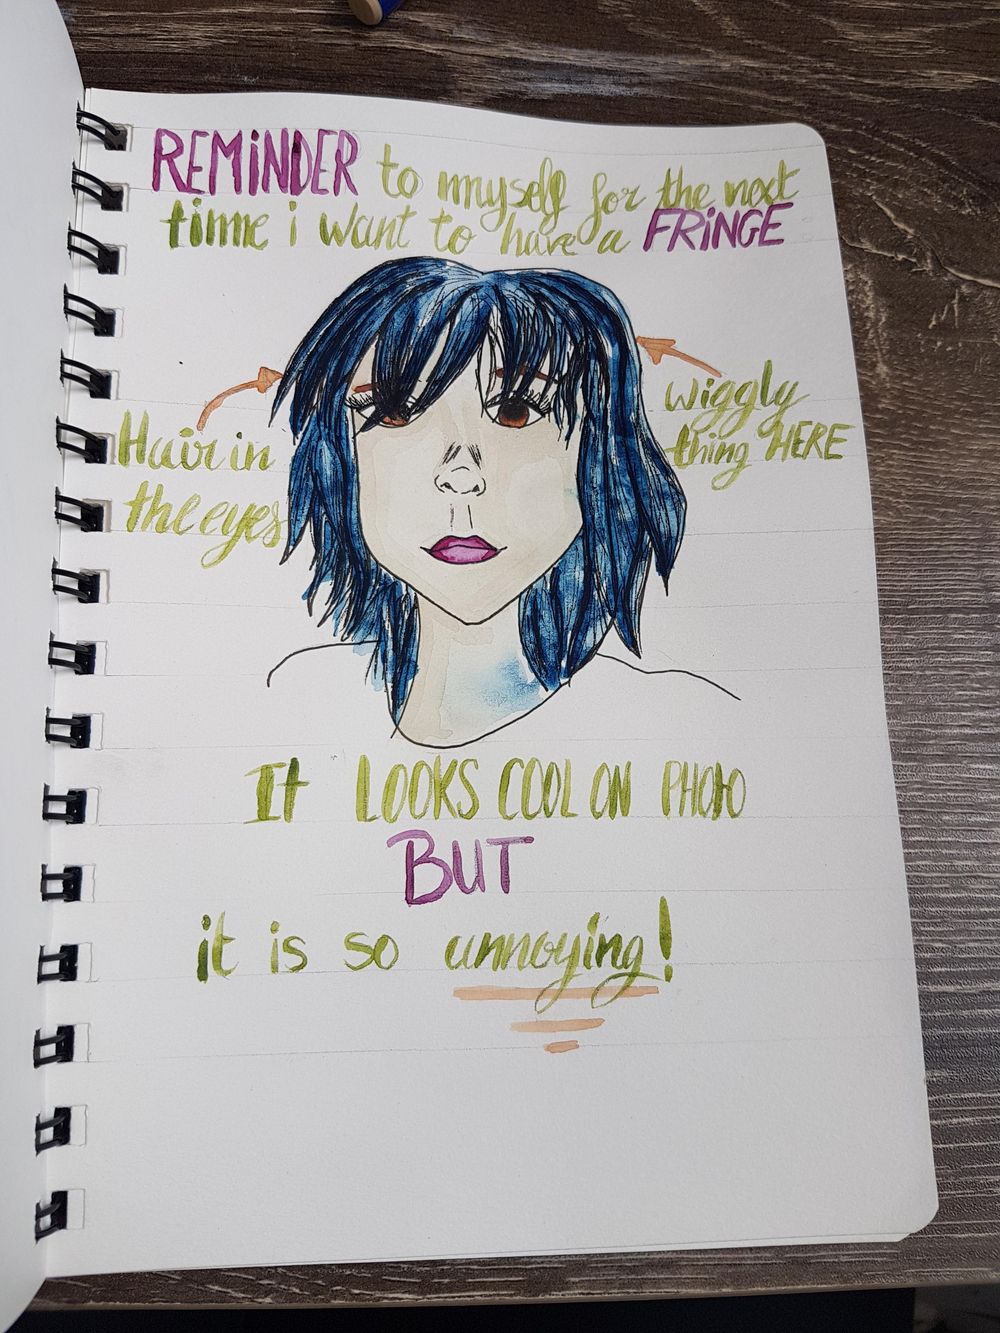 REMINDER to myself for the next
time i want to have a FRINGE
Hair in
the eyes
wiggly
thing HERE
It LOOKS COOL ON PHOTO
BUT
it is so annoying!